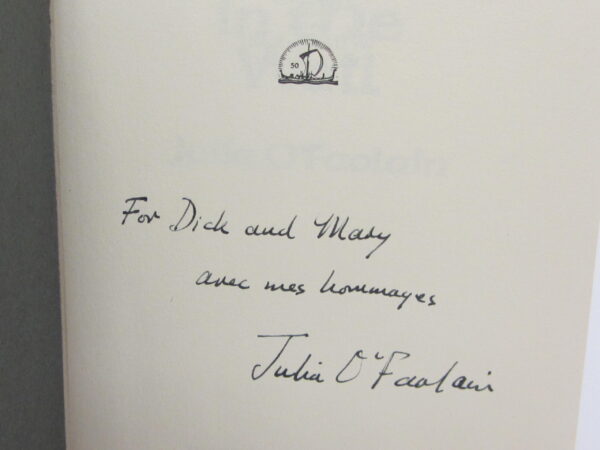 50
For Dick and Mary
avec mes hommages
Julia O'Faolain